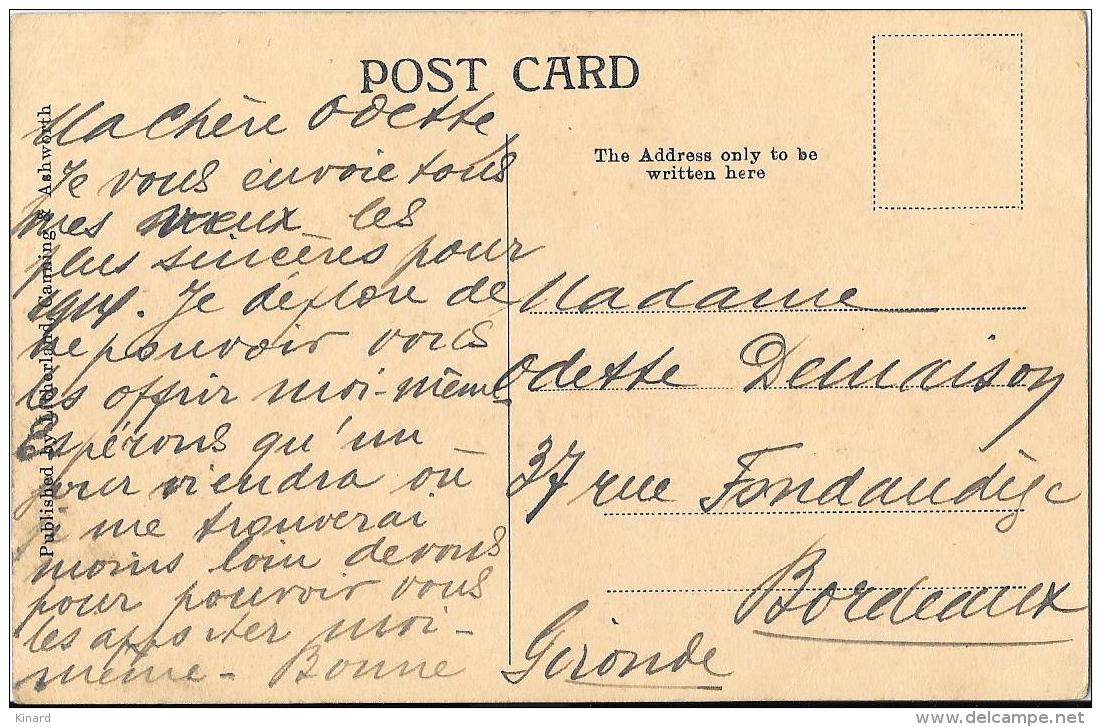 POST CARD
The Address only to be
written here
Published by Litherland, Canning & Ashworth
Ma Chère Odette
Je vous envoie tous
mes vœux les
plus sincères pour
1914. Je déplore de
ne pouvoir vous
les offrir moi-même
Espérons qu'un
jour viendra où
je me trouverai
moins loin de vous
pour pouvoir vous
les apporter moi-
même - Bonne
Madame
Odette Demaison
37 rue Fondaudège
Bordeaux
Gironde
Kinard
delcampe.net